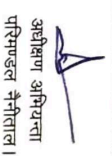 अधीक्षण अभियन्ता
परिमण्डल नैनीताल।